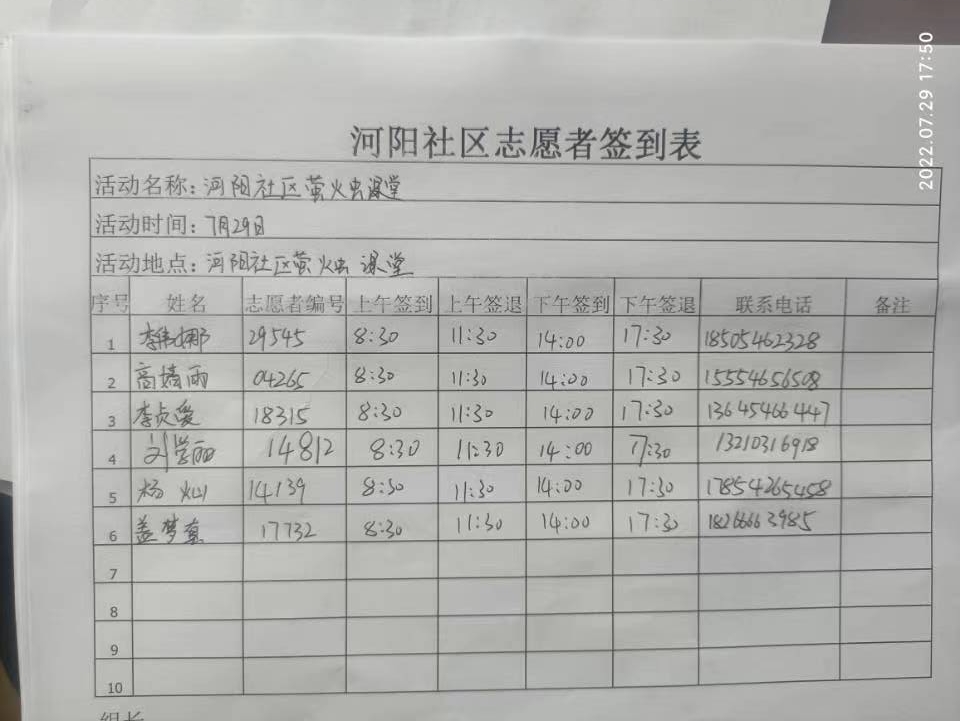 2022.07.29 17:50
河阳社区志愿者签到表
活动名称: 河阳社区萤火虫课堂
活动时间: 7月29日
活动地点: 河阳社区萤火虫 课堂
序号 姓名 志愿者编号 上午签到 上午签退 下午签到 下午签退 联系电话 备注
1 李伟娜 29545 8:30 11:30 14:00 17:30 18505462328
2 高婧雨 04265 8:30 11:30 14:00 17:30 15554656508
3 李贞爱 18315 8:30 11:30 14:00 17:30 13645466447
4 刘学丽 14812 8:30 11:30 14:00 17:30 13210316918
5 杨灿 14139 8:30 11:30 14:00 17:30 17854265458
6 盖梦 17732 8:30 11:30 14:00 17:30 18266663985
7
8
9
10
组长